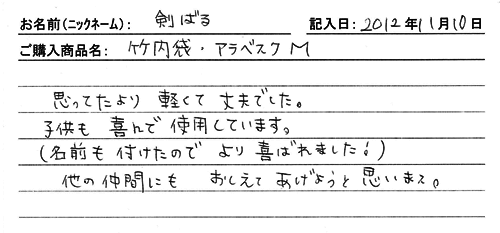 お名前(ニックネーム): 剣ばる 記入日: 2012年11月10日
ご購入商品名: 竹内袋・アラベスクM
思ってたより 軽くて 丈夫でした。
子供も 喜んで 使用しています。
(名前も 付けたので より 喜ばれました!)
他の仲間にも おしえて あげようと 思います。